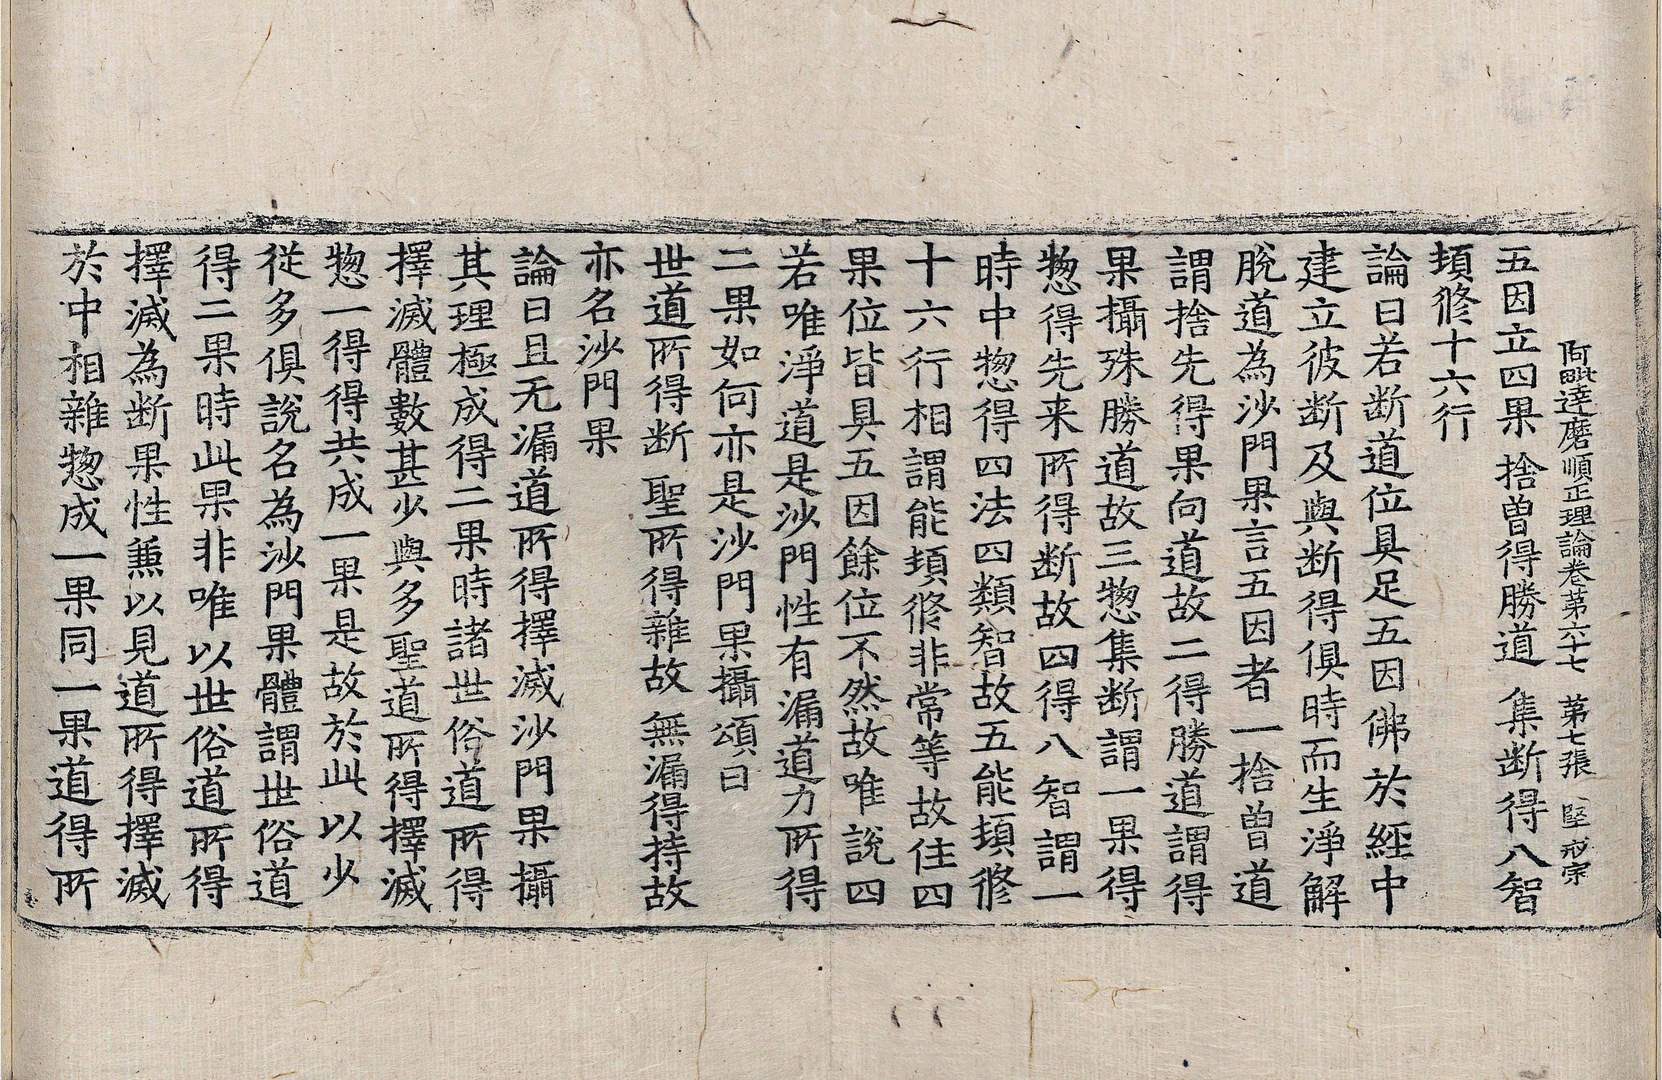 阿毗達磨順正理論卷第六十七　第七張　堅　戒宗
五因立四果　捨曾得勝道　集断得八智
頓修十六行
論曰若断道位具足五因佛於經中
建立彼断及與断得俱時而生淨解
脫道為沙門果言五因者一捨曾道
謂捨先得果向道故二得勝道謂得
果攝殊勝道故三惣集断謂一果得
惣得先来所得断故四得八智謂一
時中惣得四法四類智故五能頓修
十六行相謂能頓修非常等故住四
果位皆具五因餘位不然故唯說四
若唯淨道是沙門性有漏道力所得
二果如何亦是沙門果攝頌曰
世道所得断　聖所得雜故　無漏得持故
亦名沙門果
論曰且无漏道所得擇滅沙門果攝
其理極成得二果時諸世俗道所得
擇滅體數甚少與多聖道所得擇滅
惣一得得共成一果是故於此以少
從多俱說名為沙門果體謂世俗道
得二果時此果非唯以世俗道所得
擇滅為断果性兼以見道所得擇滅
於中相雜惣成一果同一果道得所